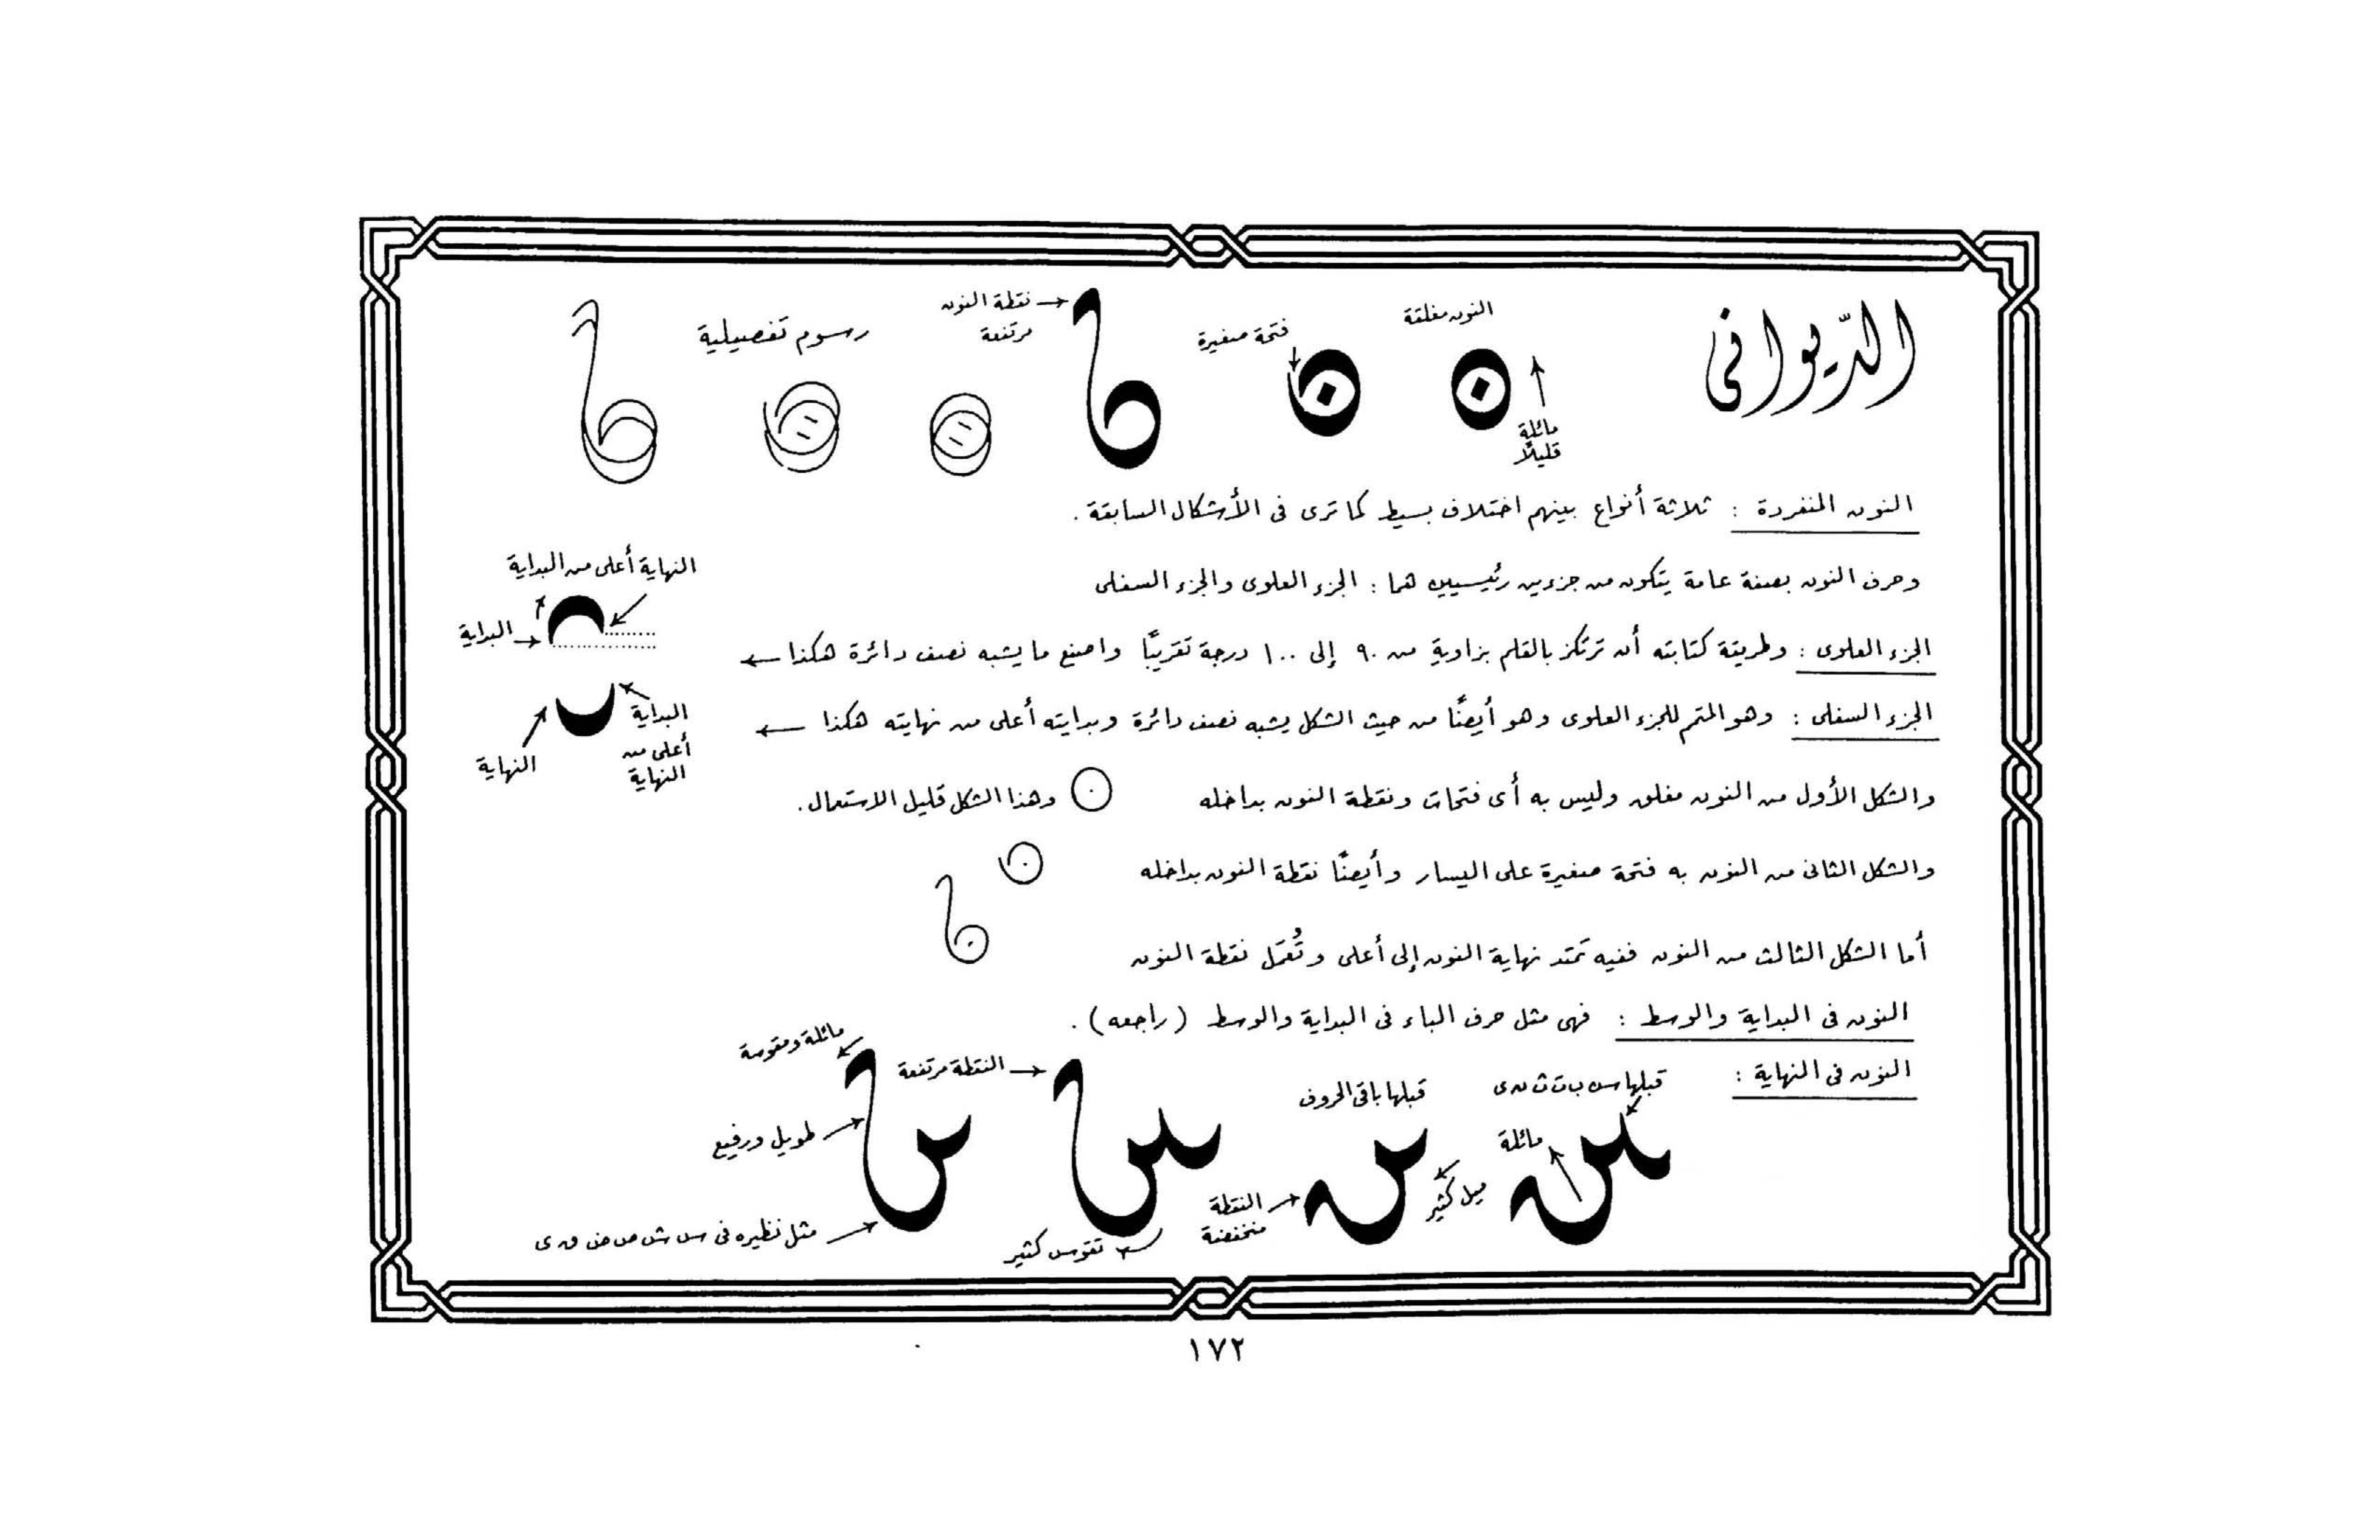 الدّيوانى
النون مغلقة
مائلة
قليلاً
فتحة صغيرة
نقطة النون
مرتفعة
رسوم تفصيلية
النون المنفردة : ثلاثة أنواع بينهم اختلاف بسيط كما ترى فى الأشكال السابقة .
وحرف النون بصفة عامة يتكون من جزءين رئيسيين هما : الجزء العلوى والجزء السفلى
الجزء العلوى : وطريقة كتابته أن ترتكز بالقلم بزاوية من ٩٠ إلى ١٠٠ درجة تقريبًا واصنع ما يشبه نصف دائرة هكذا ←
النهاية أعلى من البداية
البداية
الجزء السفلى : وهو المتم للجزء العلوى وهو أيضًا من حيث الشكل يشبه نصف دائرة وبدايته أعلى من نهايته هكذا ←
البداية
أعلى من
النهاية
النهاية
والشكل الأول من النون مغلق وليس به أى فتحات ونقطة النون بداخله وهذا الشكل قليل الاستعمال.
والشكل الثانى من النون به فتحة صغيرة على اليسار وأيضًا نقطة النون بداخله
أما الشكل الثالث من النون ففيه تمتد نهاية النون إلى أعلى وتُعمَل نقطة النون
النون فى البداية والوسط : فهى مثل حرف الباء فى البداية والوسط (راجعه) .
النون فى النهاية :
قبلها س ب ت ث ن ى
مائلة
قبلها باقى الحروف
ميل كثير
النقطة
منخفضة
النقطة مرتفعة
تقوس كثير
مائلة ومقوسة
طويل ورفيع
مثل نظيره فى س ش ص ض ق ى
١٧٢